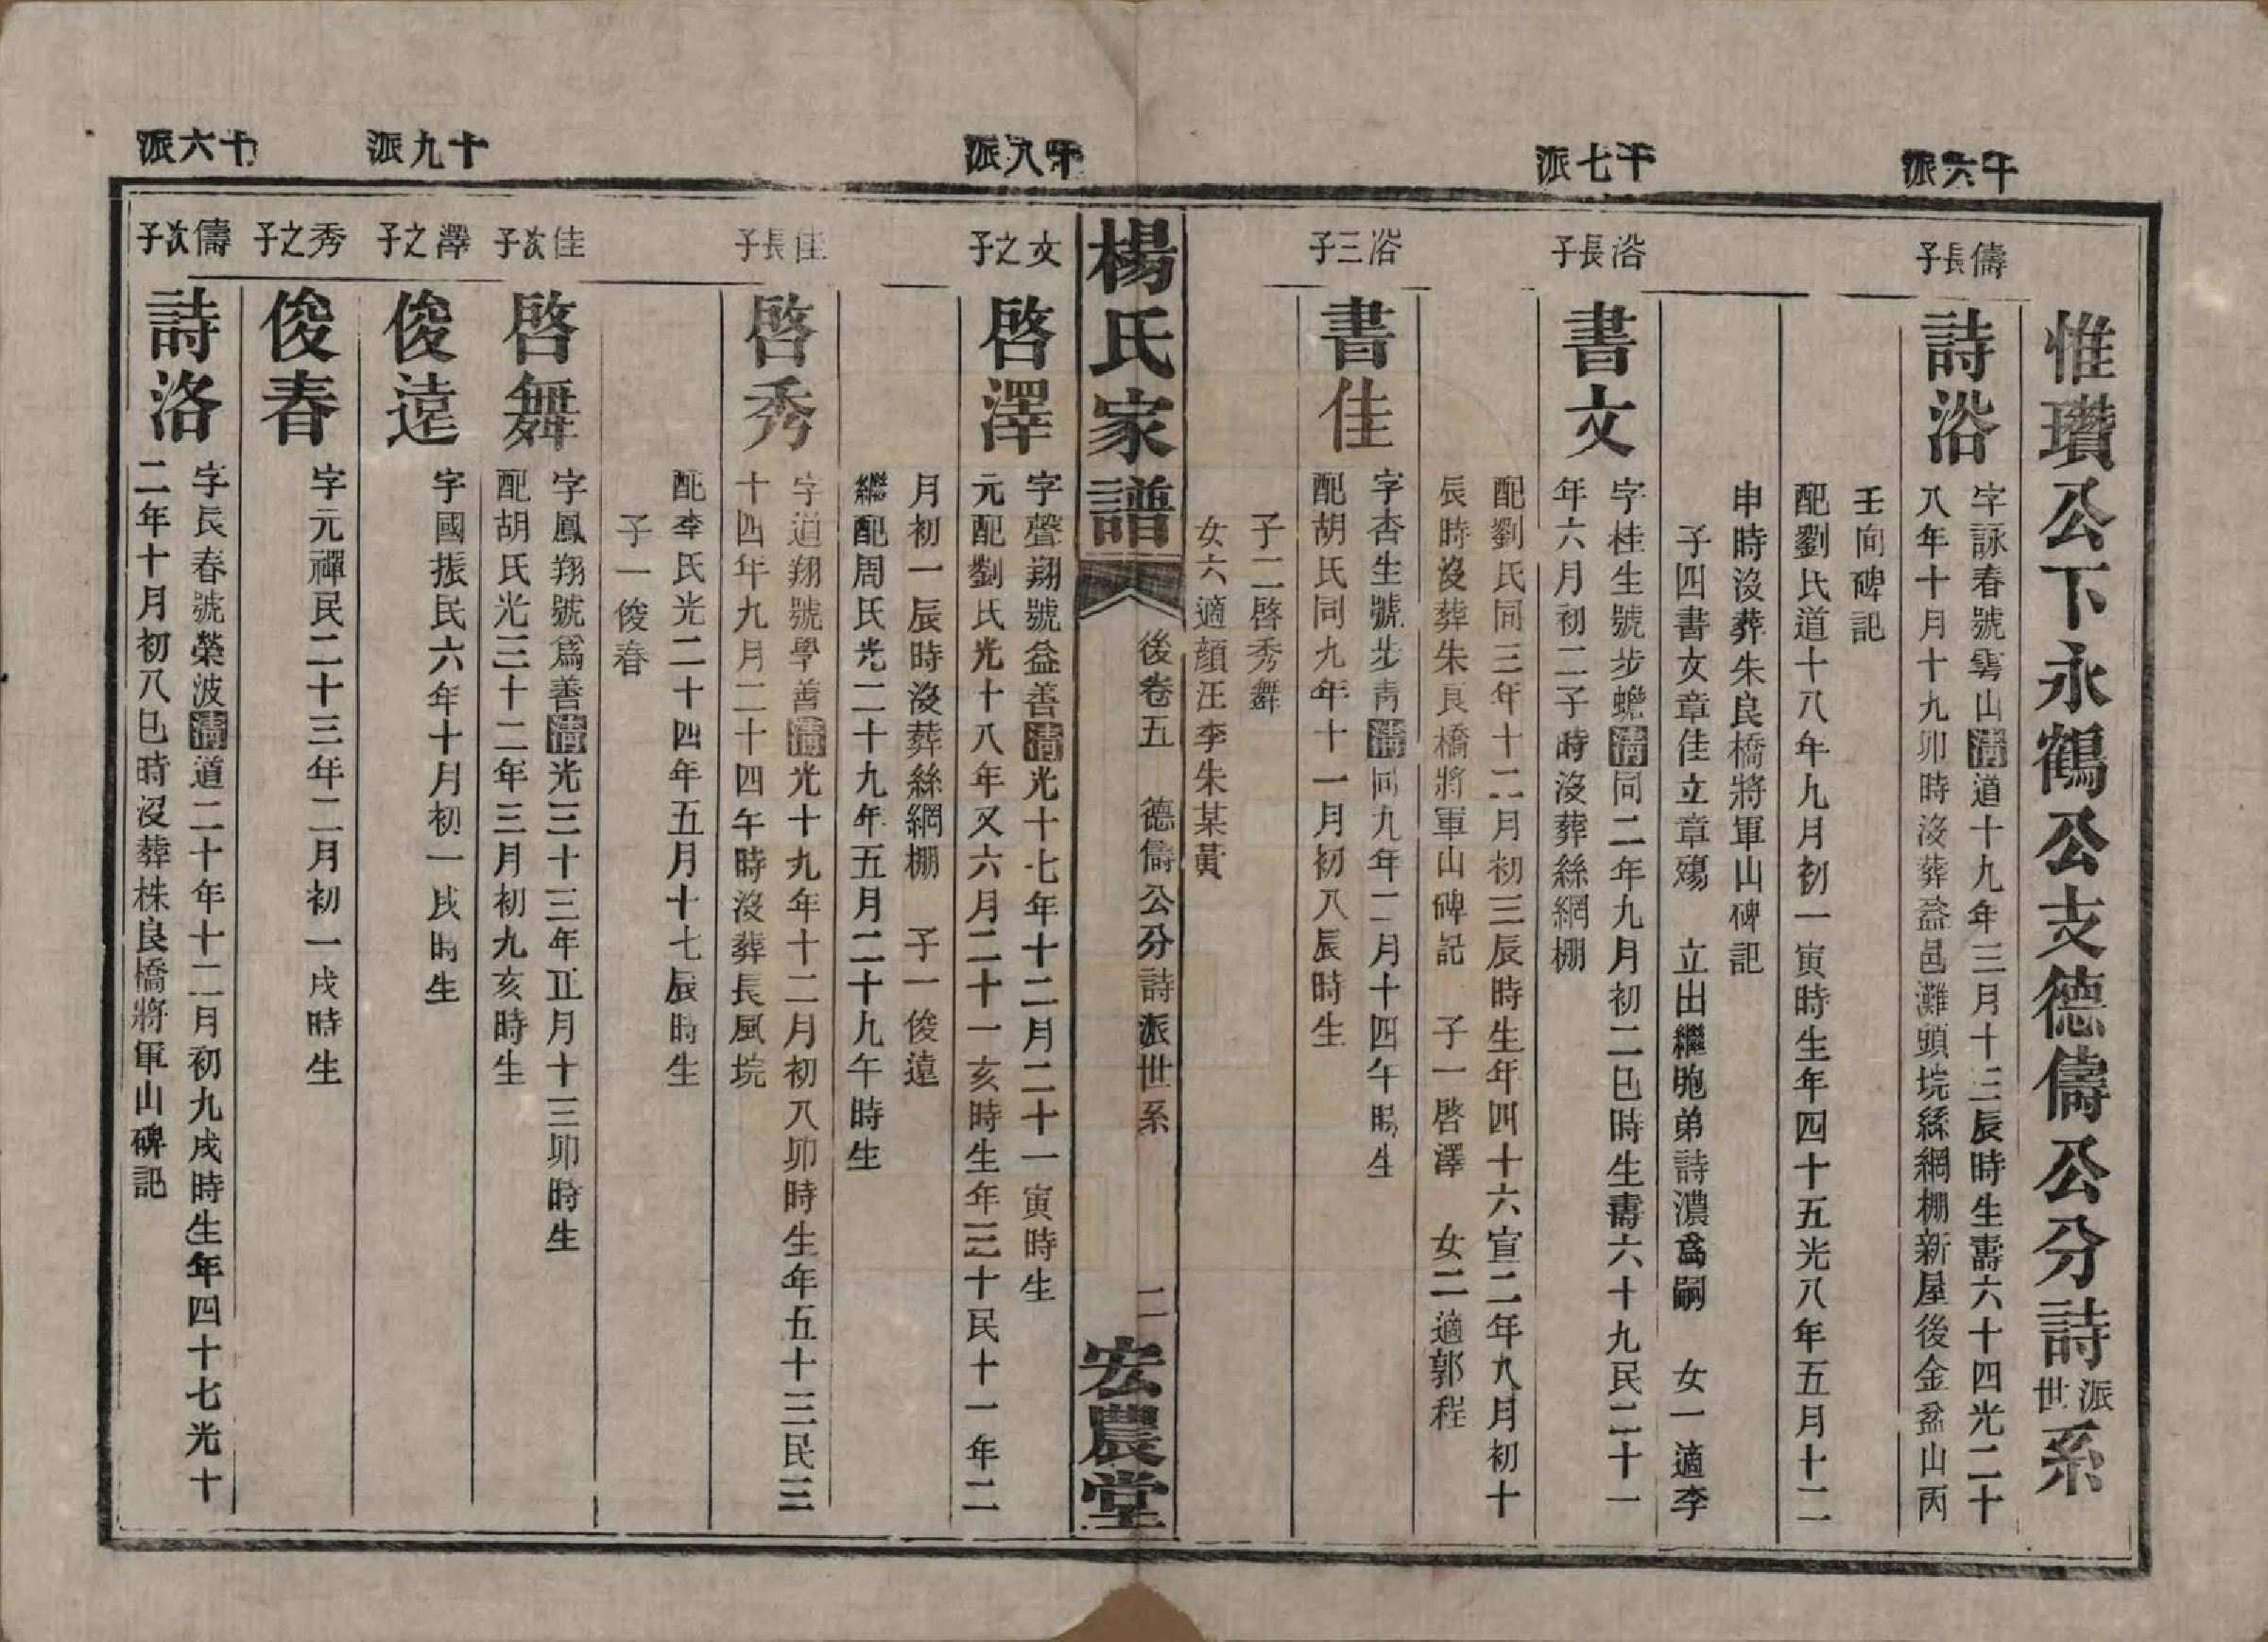 惟瓚公下永鶴公支德儔公分詩派世系
十六派
儔長子
詩浴
字詠春號雩山清道十九年三月十三辰時生壽六十四光二十
八年十月十九卯時沒葬益邑灘頭垸絲網棚新屋後金盆山丙
壬向碑記
配劉氏道十八年九月初一寅時生年四十五光八年五月十二
申時沒葬朱良橋將軍山碑記
子四書文章佳立章殤　立出繼胞弟詩濃爲嗣　女一適李
十七派
浴長子
書文
字桂生號步蟾清同二年九月初二巳時生壽六十九民二十一
年六月初二子時沒葬絲網棚
配劉氏同三年十二月初三辰時生年四十六宣二年九月初十
辰時沒葬朱良橋將軍山碑記　子一啓澤　女二適郭程
浴三子
書佳
字杏生號步青清同九年二月十四午時生
配胡氏同九年十一月初八辰時生
子二啓秀舞
女六適顔汪李朱某黃
楊氏家譜
後卷五　德儔公分詩派世系
二
宏農堂
十八派
文之子
啓澤
字聲翔號益善清光十七年十二月二十一寅時生
元配劉氏光十八年又六月二十一亥時生年三十民十一年二
月初一辰時沒葬絲網棚　子一俊遠
繼配周氏光二十九年五月二十九午時生
佳長子
啓秀
字道翔號學善清光十九年十二月初八卯時生年五十三民三
十四年九月二十四午時沒葬長風垸
配李氏光二十四年五月十七辰時生
子一俊春
佳次子
啓舞
字鳳翔號爲善清光三十三年正月十三卯時生
配胡氏光三十二年三月初九亥時生
十九派
澤之子
俊遠
字國振民六年十月初一戌時生
秀之子
俊春
字元禪民二十三年二月初一戌時生
十六派
儔次子
詩洛
字長春號榮波清道二十年十二月初九戌時生年四十七光十
二年十月初八巳時沒葬株良橋將軍山碑記